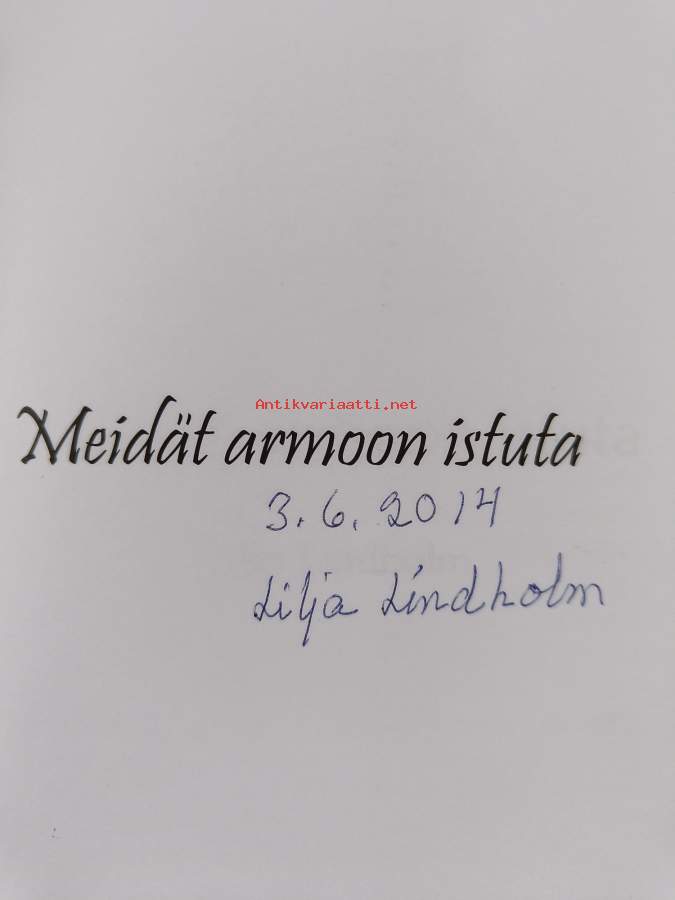 Antikvariaatti.net
Meidät armoon istuta
3.6.2014
Lilja Lindholm